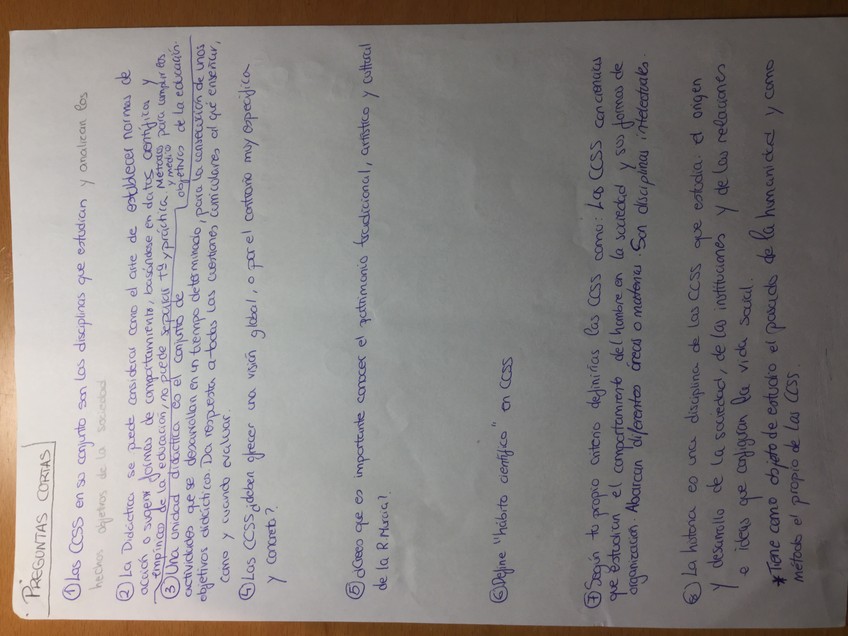 PREGUNTAS CORTAS
① Las CCSS en su conjunto son las disciplinas que estudian y analizan los
hechos objetivos de la sociedad
② La Didáctica se puede considerar como el arte de establecer normas de
acción o sugerir formas de comportamiento, basándose en datos científicos y
empíricos de la educación, no puede separar Tª y práctica. Métodos y medio para cumplir los
objetivos de la educación.
③ Una unidad didáctica es el conjunto de
actividades que se desarrollan en un tiempo determinado, para la consecución de unos
objetivos didácticos. Da respuesta a todas las cuestiones curriculares al qué enseñar,
como y cuando evaluar.
④ Las CCSS ¿deben ofrecer una visión global, o por el contrario muy específica
y concreto?
⑤ ¿Crees que es importante conocer el patrimonio tradicional, artístico y cultural
de la R. Murcia?
⑥ Define "hábito científico" en CCSS
⑦ Según tu propio criterio definirías las CCSS como: Las CCSS con ciencias
que estudian el comportamiento del hombre en la sociedad y sus formas de
organización. Abarcan diferentes áreas o materias. Son disciplinas intelectuales.
⑧ La historia es una disciplina de las CCSS que estudia: el origen
y desarrollo de la sociedad, de las instituciones y de las relaciones
e ideas que configuran la vida social.
* Tiene como objeto de estudio el pasado de la humanidad y como
método el propio de las CCSS.